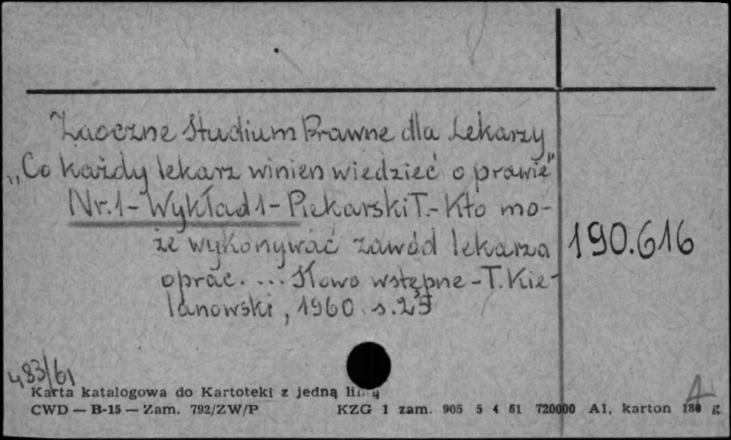 Zaoczne Studium Prawne dla Lekarzy
„Co każdy lekarz winien wiedzieć o prawie"
Nr.1 - Wykład 1 - Piekarski T. - Kto mo-
że wykonywać zawód lekarza
oprac. ... Słowo wstępne - T. Kie-
lanowski, 1960 s.23
190.616
483/61
Karta katalogowa do Kartoteki z jedną linią
CWD — B-15 — Zam. 792/ZW/P KZG 1 zam. 905 5 4 61 720000 A1, karton 180 g